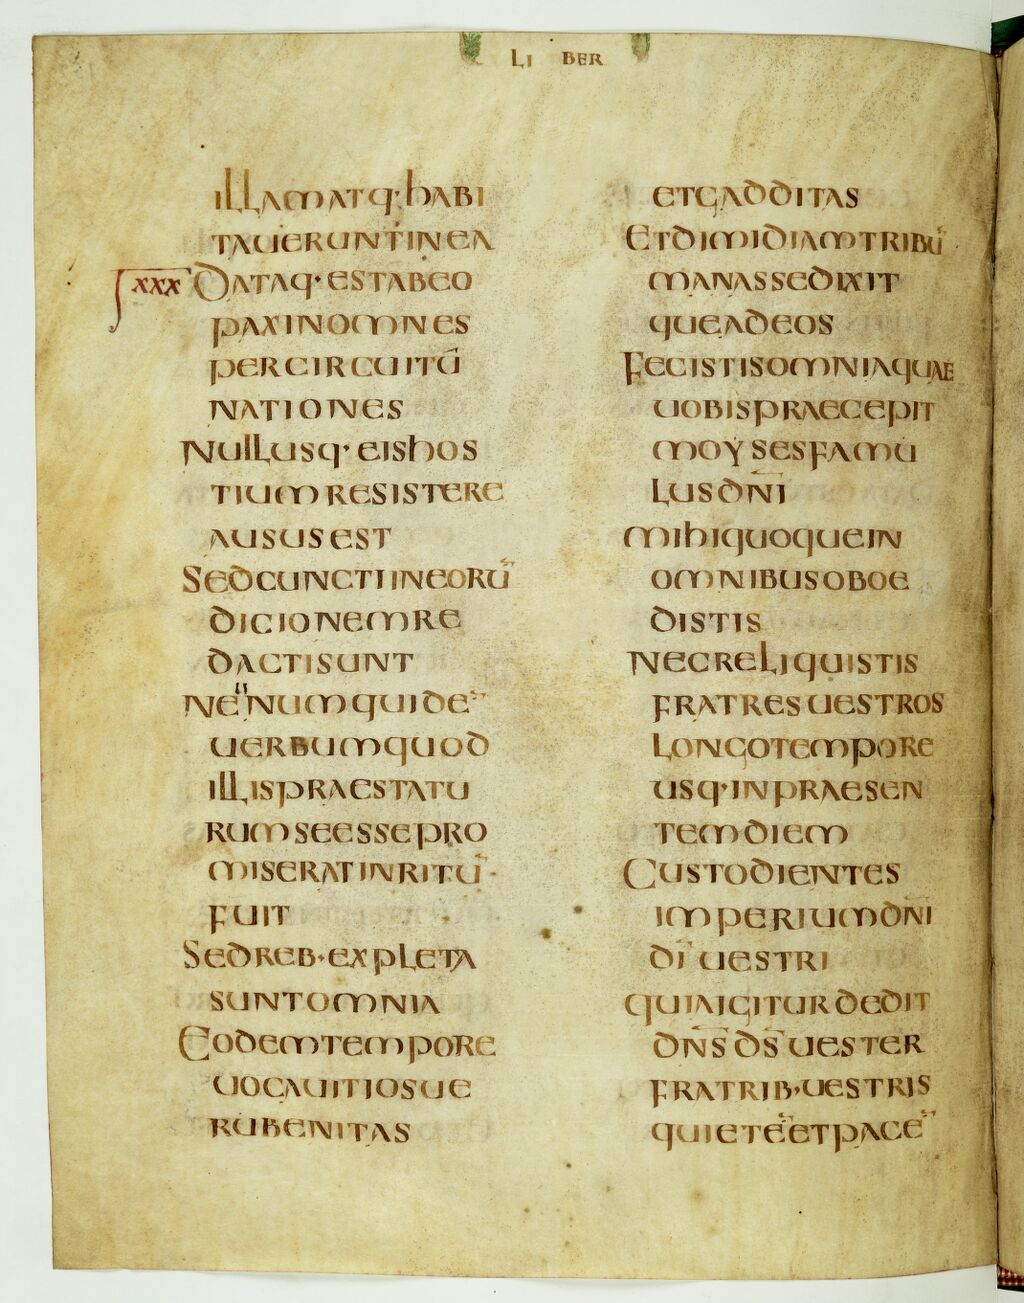 LI BER
illamatq·habi
taueruntinea
xxx Dataq·estabeo
paxinomnes
percircuitū
nationes
Nullusq·eishos
tiumresistere
aususest
Sedcunctiineorū
dicionemre
dactisunt
Nēnumquide̅
uerbumquod
illispraestatu
rumseessepro
miseratinritū·
fuit
Sedreb·expleta
suntomnia
Eodemtempore
uocauitiosue
rubenitas
etgadditas
Etdimidiamtribū
manassedixit
queadeos
Fecistisomniaquae
uobispraecepit
moysesfamu
lusdn̄i
mihiquoquein
omnibusoboe
distis
Necreliquistis
fratresuestros
longotempore
usq·inpraesen
temdiem
Custodientes
imperiumdn̄i
dī uestri
quiaigiturdedit
dn̄sds̄uester
fratrib·uestris
quietē̅etpacē